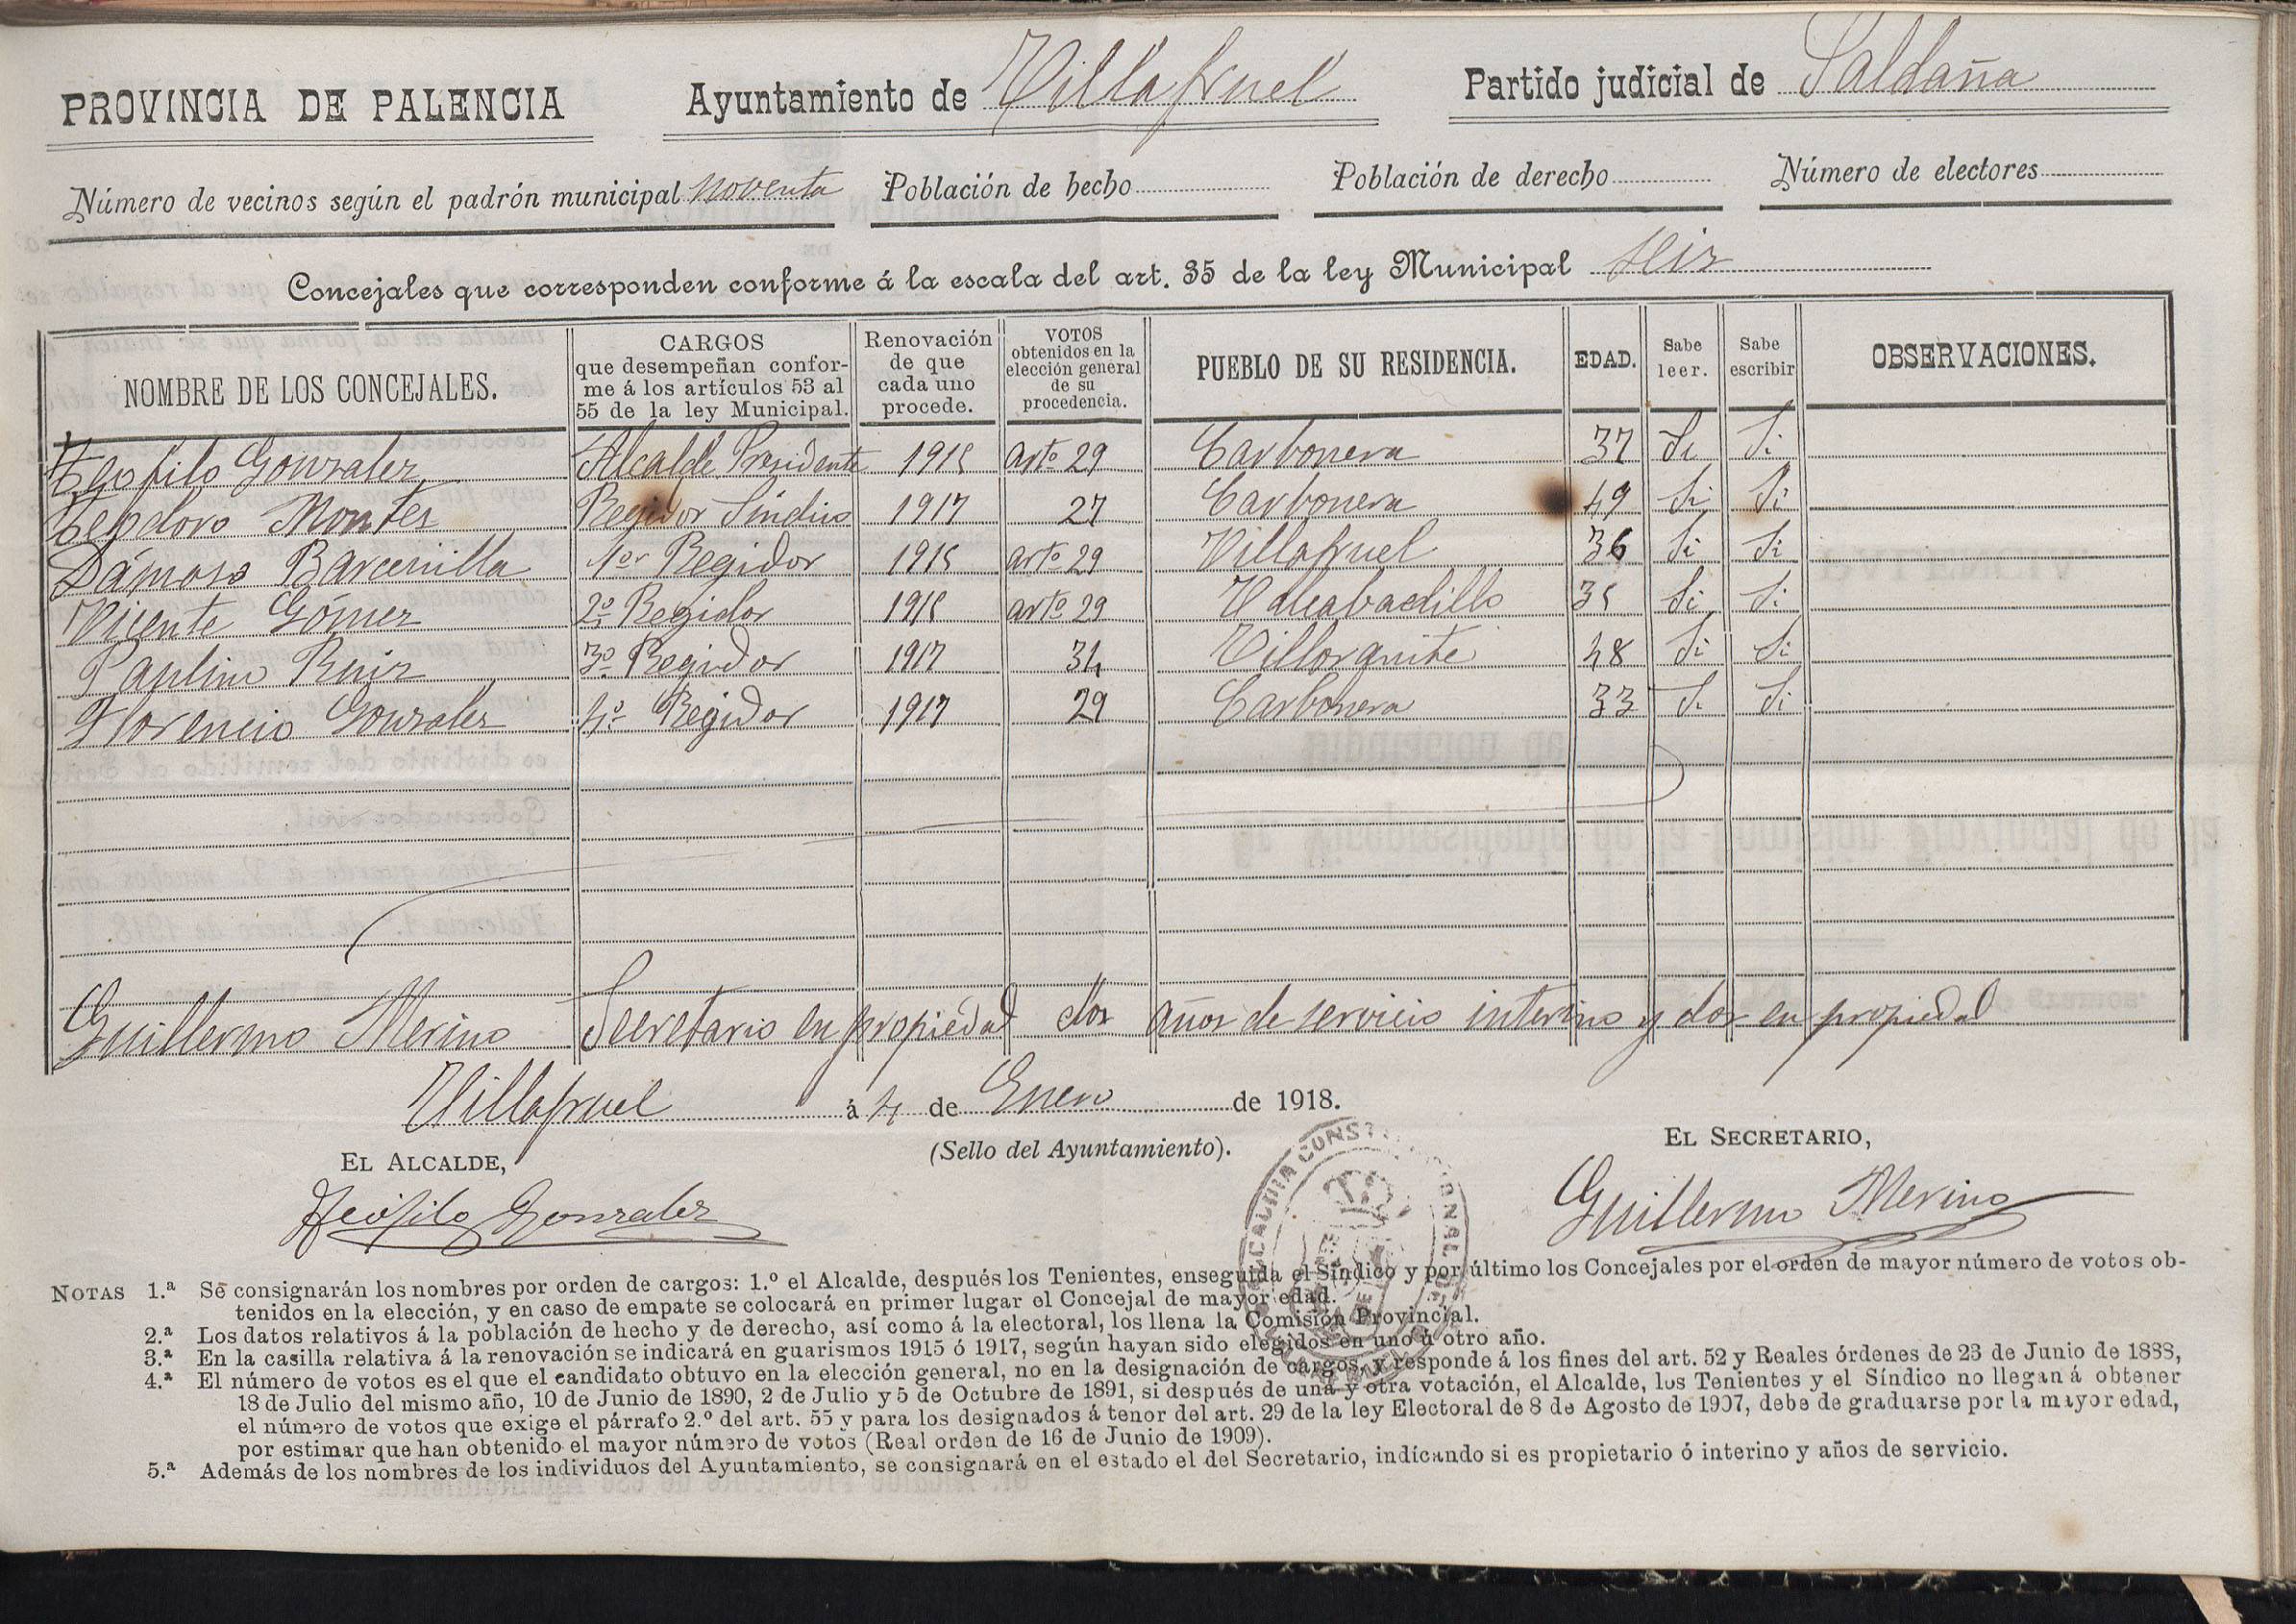 PROVINCIA DE PALENCIA Ayuntamiento de Villapruel Partido judicial de Saldaña
Número de vecinos según el padrón municipal noventa Población de hecho Población de derecho Número de electores
Concejales que corresponden conforme á la escala del art. 35 de la ley Municipal seis
NOMBRE DE LOS CONCEJALES. CARGOS que desempeñan confor- me á los artículos 53 al 55 de la ley Municipal. Renovación de que cada uno procede. VOTOS obtenidos en la elección general de su procedencia. PUEBLO DE SU RESIDENCIA. EDAD. Sabe leer. Sabe escribir OBSERVACIONES.
Teofilo Gonzalez Alcalde Presidente 1915 artº 29 Carbonera 37 Si Si
Teodoro Montes Regidor Síndico 1917 27 Carbonera 49 Si Si
Dámaso Barcenilla 1er Regidor 1915 artº 29 Villapruel 36 Si Si
Vicente Gómez 2º Regidor 1915 artº 29 Valcabadillo 35 Si Si
Paulino Ruiz 3º Regidor 1917 34 Villorquite 48 Si Si
Florencio Gonzalez 4º Regidor 1917 29 Carbonera 33 Si Si
Guillermo Merino Secretario en propiedad dos años de servicio interino y dos en propiedad
Villapruel á 4 de Enero de 1918.
(Sello del Ayuntamiento).
EL ALCALDE, EL SECRETARIO,
Teófilo Gonzalez Guillermo Merino
ALCALDIA CONST IONAL
NOTAS 1.ª Se consignarán los nombres por orden de cargos: 1.º el Alcalde, después los Tenientes, enseguida el Síndico y por último los Concejales por el orden de mayor número de votos ob-
tenidos en la elección, y en caso de empate se colocará en primer lugar el Concejal de mayor edad.
2.ª Los datos relativos á la población de hecho y de derecho, así como á la electoral, los llena la Comisión Provincial.
3.ª En la casilla relativa á la renovación se indicará en guarismos 1915 ó 1917, según hayan sido elegidos en uno ú otro año.
4.ª El número de votos es el que el candidato obtuvo en la elección general, no en la designación de cargos, y responde á los fines del art. 52 y Reales órdenes de 23 de Junio de 1888,
18 de Julio del mismo año, 10 de Junio de 1890, 2 de Julio y 5 de Octubre de 1891, si después de una y otra votación, el Alcalde, los Tenientes y el Síndico no llegan á obtener
el número de votos que exige el párrafo 2.º del art. 55 y para los designados á tenor del art. 29 de la ley Electoral de 8 de Agosto de 1907, debe de graduarse por la mayor edad,
por estimar que han obtenido el mayor número de votos (Real orden de 16 de Junio de 1909).
5.ª Además de los nombres de los individuos del Ayuntamiento, se consignará en el estado el del Secretario, indicando si es propietario ó interino y años de servicio.